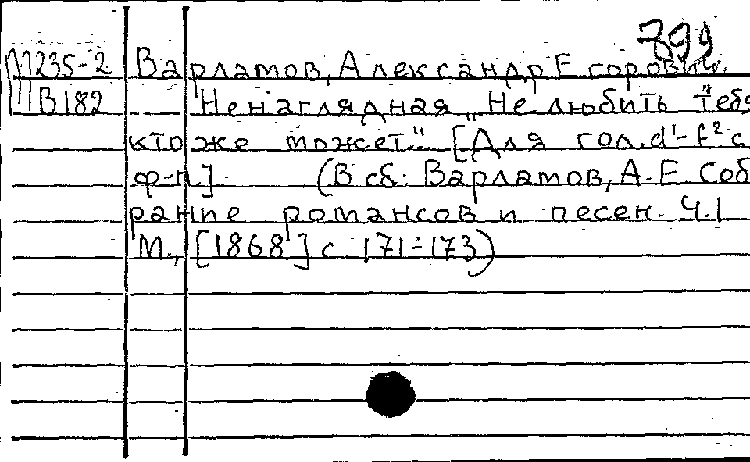 799
М235-2 Варламов, Александр Егорович.
В182 Ненаглядная „Не любить тебя
кто же может." [Для гол. d¹-f² с
ф-п.] (В сб: Варламов, А.Е. Соб
рание романсов и песен. Ч.1
М., [1868] с 171-173)